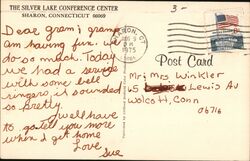 THE SILVER LAKE CONFERENCE CENTER
SHARON, CONNECTICUT 06069
3-
SHARON, CT
PM
1975
Post Card
Dear gram & gramps
am having fun. we
do so much. Today
we had a service
with some bell
ringers, it sounded
so pretty.
well have
to tell you more
when I get home
Love
Sue
Mr & Mrs Winkler
65 Lewis Av
Wolcott, Conn
06716